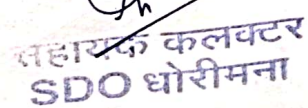 सहायक कलक्टर
SDO धोरीमना